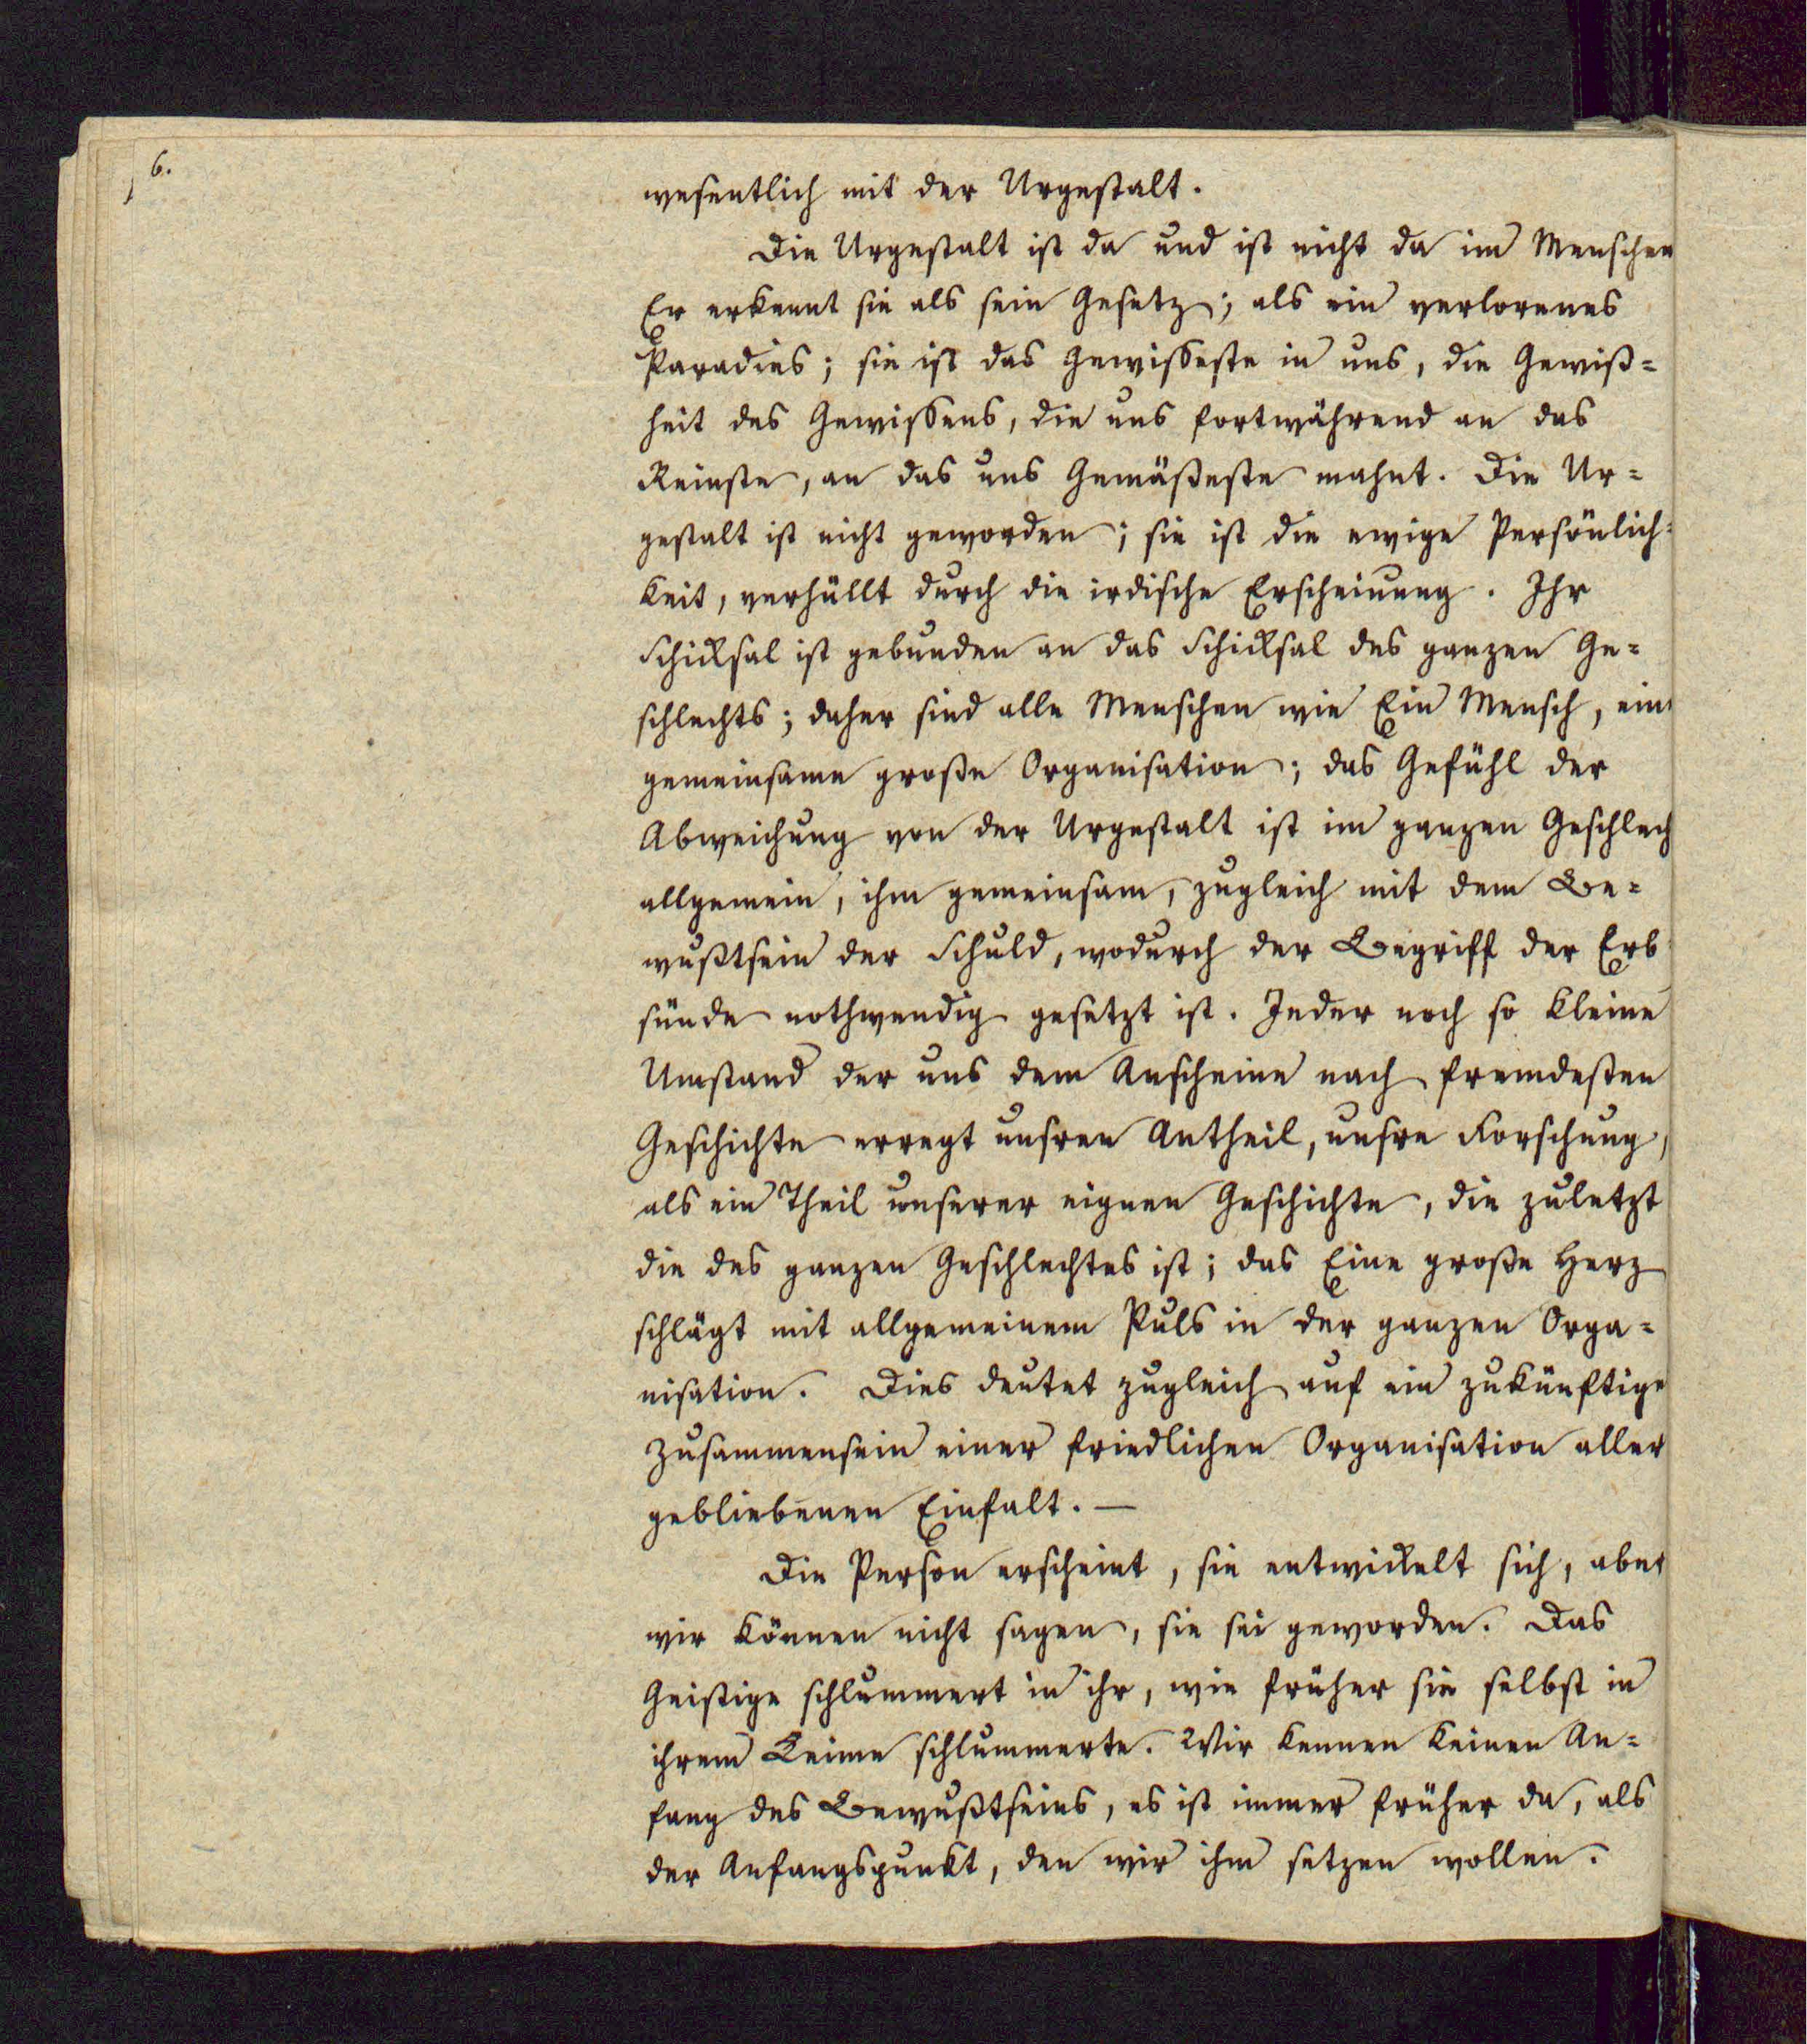 6.
wesentlich mit der Urgestalt.
Die Urgestalt ist da und ist nicht da im Menschen
Er erkennt sie als sein Gesetz; als ein verlorenes
Paradies; sie ist das Gewisseste in uns, die Gewiß=
heit des Gewissens, die uns fortwährend an das
Reinste, an das uns Gemäßeste mahnt. Die Ur=
gestalt ist nicht geworden; sie ist die ewige Persönlich=
keit, verhüllt durch die irdische Erscheinung. Ihr
Schicksal ist gebunden an das Schicksal des ganzen Ge=
schlechts; daher sind alle Menschen wie Ein Mensch, ein
gemeinsame große Organisation; das Gefühl der
Abweichung von der Urgestalt ist im ganzen Geschlech
allgemein, ihm gemeinsam, zugleich mit dem Be=
wußtsein der Schuld, wodurch der Begriff der Erb
sünde nothwendig gesetzt ist. Jeder noch so kleine
Umstand der uns dem Anscheine nach fremdesten
Geschichte erregt unsren Antheil, unsre Forschung,
als ein Theil unserer eignen Geschichte, die zuletzt
die des ganzen Geschlechtes ist; das Eine große Herz
schlägt mit allgemeinem Puls in der ganzen Orga=
nisation. Dies deutet zugleich auf ein zukünftige
Zusammensein einer friedlichen Organisation aller
gebliebenen Einfalt. —
Die Person erscheint, sie entwickelt sich, aber
wir können nicht sagen, sie sei geworden. Das
Geistige schlummert in ihr, wie früher sie selbst in
ihrem Keime schlummerte. Wir kennen keinen An=
fang des Bewußtseins, es ist immer früher da, als
der Anfangspunkt, den wir ihm setzen wollen.